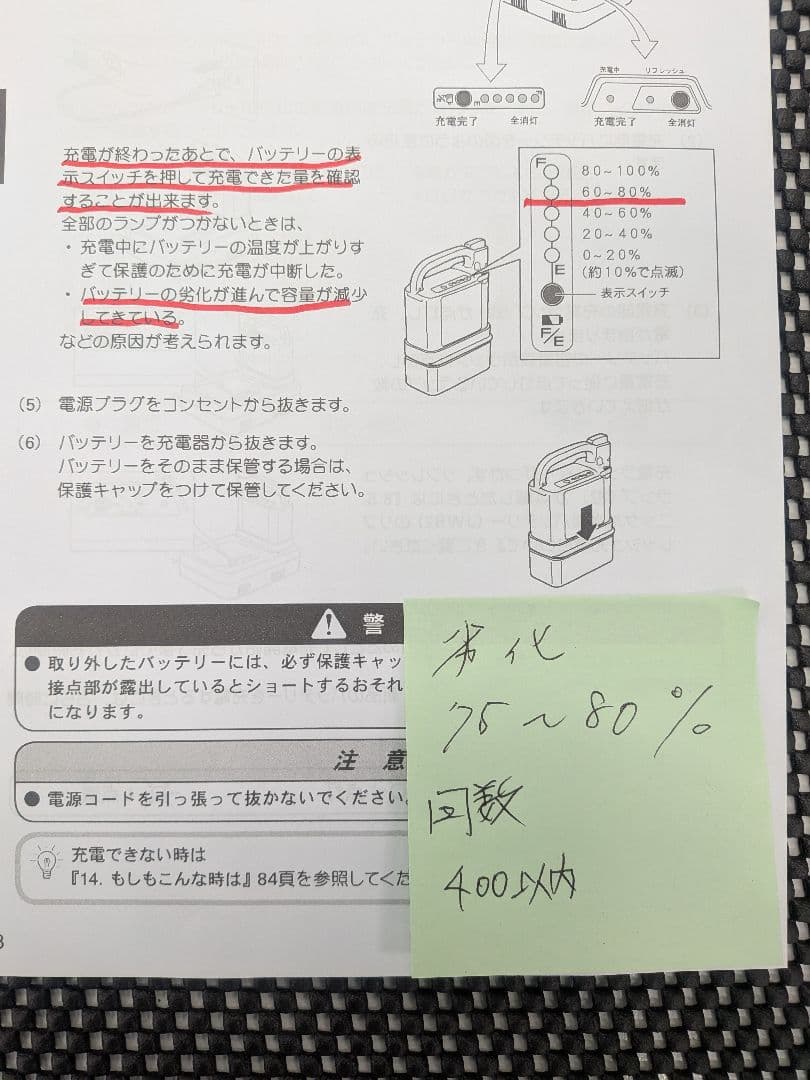 充電中 リフレッシュ
充電完了 全消灯 充電完了 全消灯
充電が終わったあとで、バッテリーの表
示スイッチを押して充電できた量を確認
することが出来ます。
全部のランプがつかないときは、
・充電中にバッテリーの温度が上がりす
ぎて保護のために充電が中断した。
・バッテリーの劣化が進んで容量が減少
してきている。
などの原因が考えられます。
F
80~100%
60~80%
40~60%
20~40%
0~20%
E (約10%で点滅)
表示スイッチ
F/E
(5) 電源プラグをコンセントから抜きます。
(6) バッテリーを充電器から抜きます。
バッテリーをそのまま保管する場合は、
保護キャップをつけて保管してください。
警
●取り外したバッテリーには、必ず保護キャッ
接点部が露出しているとショートするおそれ
になります。
注 意
●電源コードを引っ張って抜かないでください。
充電できない時は
『14. もしもこんな時は』84頁を参照してくだ
劣化
75~80%
回数
400以内